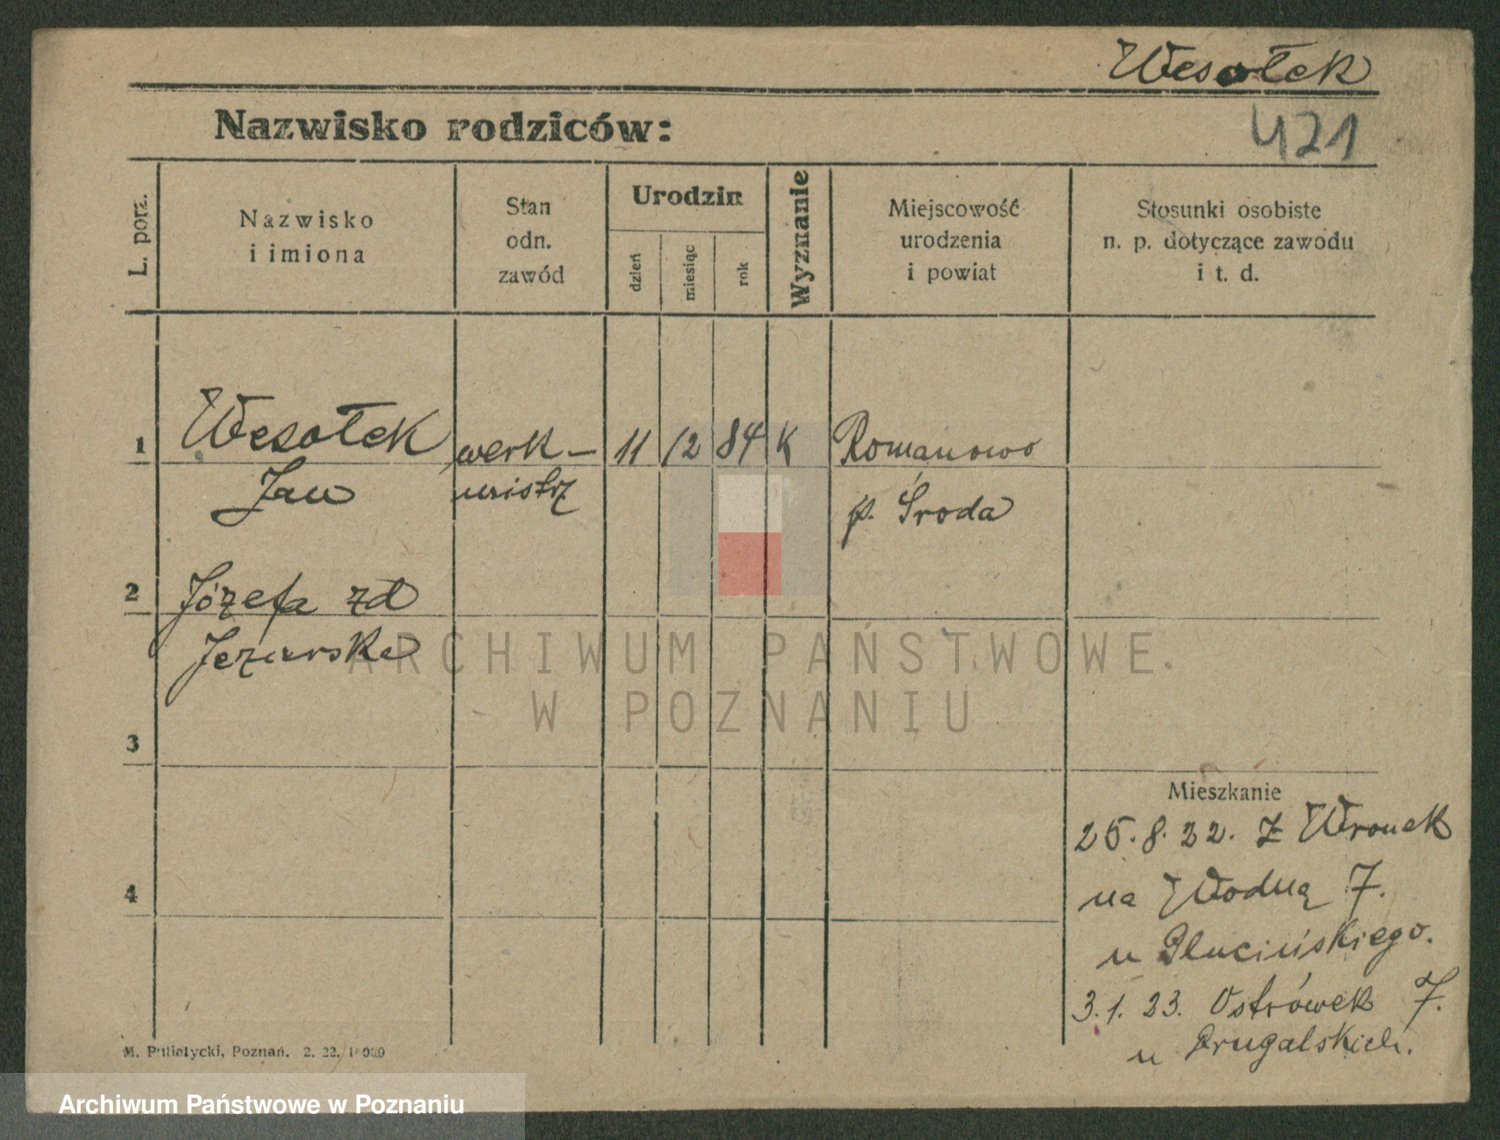 Wesołek
421
Nazwisko rodziców:
L. porz.
Nazwisko
i imiona
Stan
odn.
zawód
Urodzin
dzień
miesiąc
rok
Wyznanie
Miejscowość
urodzenia
i powiat
Stosunki osobiste
n. p. dotyczące zawodu
i t. d.
1 Wesołek werk- 11 12 84 K Romanowo
Jan mistrz p. Środa
2 Józefa zd
3
Mieszkanie
25.8.22. z Wronek
4
na Wodną 7.
u
3.1.23. Ostrówek 7.
u
M. Putiatycki, Poznań. 2. 22.
ARCHIWUM PAŃSTWOWE
W POZNANIU
Archiwum Państwowe w Poznaniu